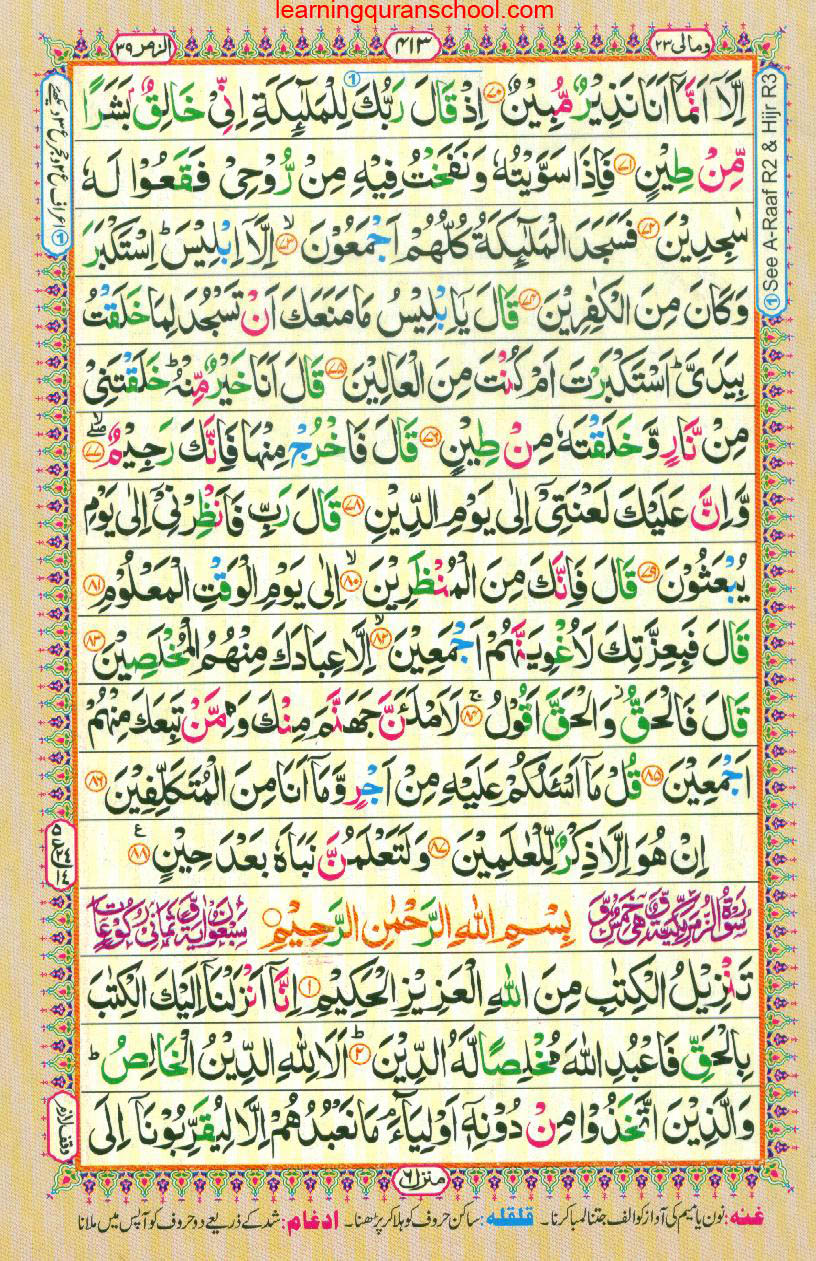 learningquranschool.com
ومالی ٢٣
٤١٣
الزمر ٣٩
اِلَّاۤ اَنَّمَاۤ اَنَا نَذِيْرٌ مُّبِيْنٌ ﴿٧٠﴾ اِذْ قَالَ رَبُّكَ لِلْمَلٰٓىِٕكَةِ اِنِّىْ خَالِقٌۢ بَشَرًا
مِّنْ طِيْنٍ ﴿٧١﴾ فَاِذَا سَوَّيْتُهٗ وَنَفَخْتُ فِيْهِ مِنْ رُّوْحِىْ فَقَعُوْا لَهٗ
سٰجِدِيْنَ ﴿٧٢﴾ فَسَجَدَ الْمَلٰٓىِٕكَةُ كُلُّهُمْ اَجْمَعُوْنَ ﴿٧٣﴾ اِلَّاۤ اِبْلِيْسَ ؕ اِسْتَكْبَرَ
وَكَانَ مِنَ الْكٰفِرِيْنَ ﴿٧٤﴾ قَالَ يٰۤاِبْلِيْسُ مَا مَنَعَكَ اَنْ تَسْجُدَ لِمَا خَلَقْتُ
بِيَدَىَّ ؕ اَسْتَكْبَرْتَ اَمْ كُنْتَ مِنَ الْعَالِيْنَ ﴿٧٥﴾ قَالَ اَنَا خَيْرٌ مِّنْهُ ؕ خَلَقْتَنِىْ
مِنْ نَّارٍ وَّخَلَقْتَهٗ مِنْ طِيْنٍ ﴿٧٦﴾ قَالَ فَاخْرُجْ مِنْهَا فَاِنَّكَ رَجِيْمٌ ﴿٧٧﴾
وَّاِنَّ عَلَيْكَ لَعْنَتِىْۤ اِلٰى يَوْمِ الدِّيْنِ ﴿٧٨﴾ قَالَ رَبِّ فَاَنْظِرْنِىْۤ اِلٰى يَوْمِ
يُبْعَثُوْنَ ﴿٧٩﴾ قَالَ فَاِنَّكَ مِنَ الْمُنْظَرِيْنَ ﴿٨٠﴾ اِلٰى يَوْمِ الْوَقْتِ الْمَعْلُوْمِ ﴿٨١﴾
قَالَ فَبِعِزَّتِكَ لَاُغْوِيَنَّهُمْ اَجْمَعِيْنَ ﴿٨٢﴾ اِلَّا عِبَادَكَ مِنْهُمُ الْمُخْلَصِيْنَ ﴿٨٣﴾
قَالَ فَالْحَقُّ وَالْحَقَّ اَقُوْلُ ﴿٨٤﴾ لَاَمْلَئَنَّ جَهَنَّمَ مِنْكَ وَمِمَّنْ تَبِعَكَ مِنْهُمْ
اَجْمَعِيْنَ ﴿٨٥﴾ قُلْ مَاۤ اَسْئَلُكُمْ عَلَيْهِ مِنْ اَجْرٍ وَّمَاۤ اَنَا مِنَ الْمُتَكَلِّفِيْنَ ﴿٨٦﴾
اِنْ هُوَ اِلَّا ذِكْرٌ لِّلْعٰلَمِيْنَ ﴿٨٧﴾ وَلَتَعْلَمُنَّ نَبَاَهٗ بَعْدَ حِيْنٍ ﴿٨٨﴾
بِسْمِ اللّٰهِ الرَّحْمٰنِ الرَّحِيْمِ
تَنْزِيْلُ الْكِتٰبِ مِنَ اللّٰهِ الْعَزِيْزِ الْحَكِيْمِ ﴿١﴾ اِنَّاۤ اَنْزَلْنَاۤ اِلَيْكَ الْكِتٰبَ
بِالْحَقِّ فَاعْبُدِ اللّٰهَ مُخْلِصًا لَّهُ الدِّيْنَ ﴿٢﴾ اَلَا لِلّٰهِ الدِّيْنُ الْخَالِصُ ؕ
وَالَّذِيْنَ اتَّخَذُوْا مِنْ دُوْنِهٖۤ اَوْلِيَآءَ ۘ مَا نَعْبُدُهُمْ اِلَّا لِيُقَرِّبُوْنَاۤ اِلَى
① See A-Raaf R2 & Hijr R3
وقف لازم
منزل ٦
غنه: نون یا میم کی آواز کو الف جتنا لمبا کرنا۔ قلقله: ساکن حروف کو ہلا کر پڑھنا۔ ادغام: شد کے ذریعے دو حروف کو آپس میں ملانا